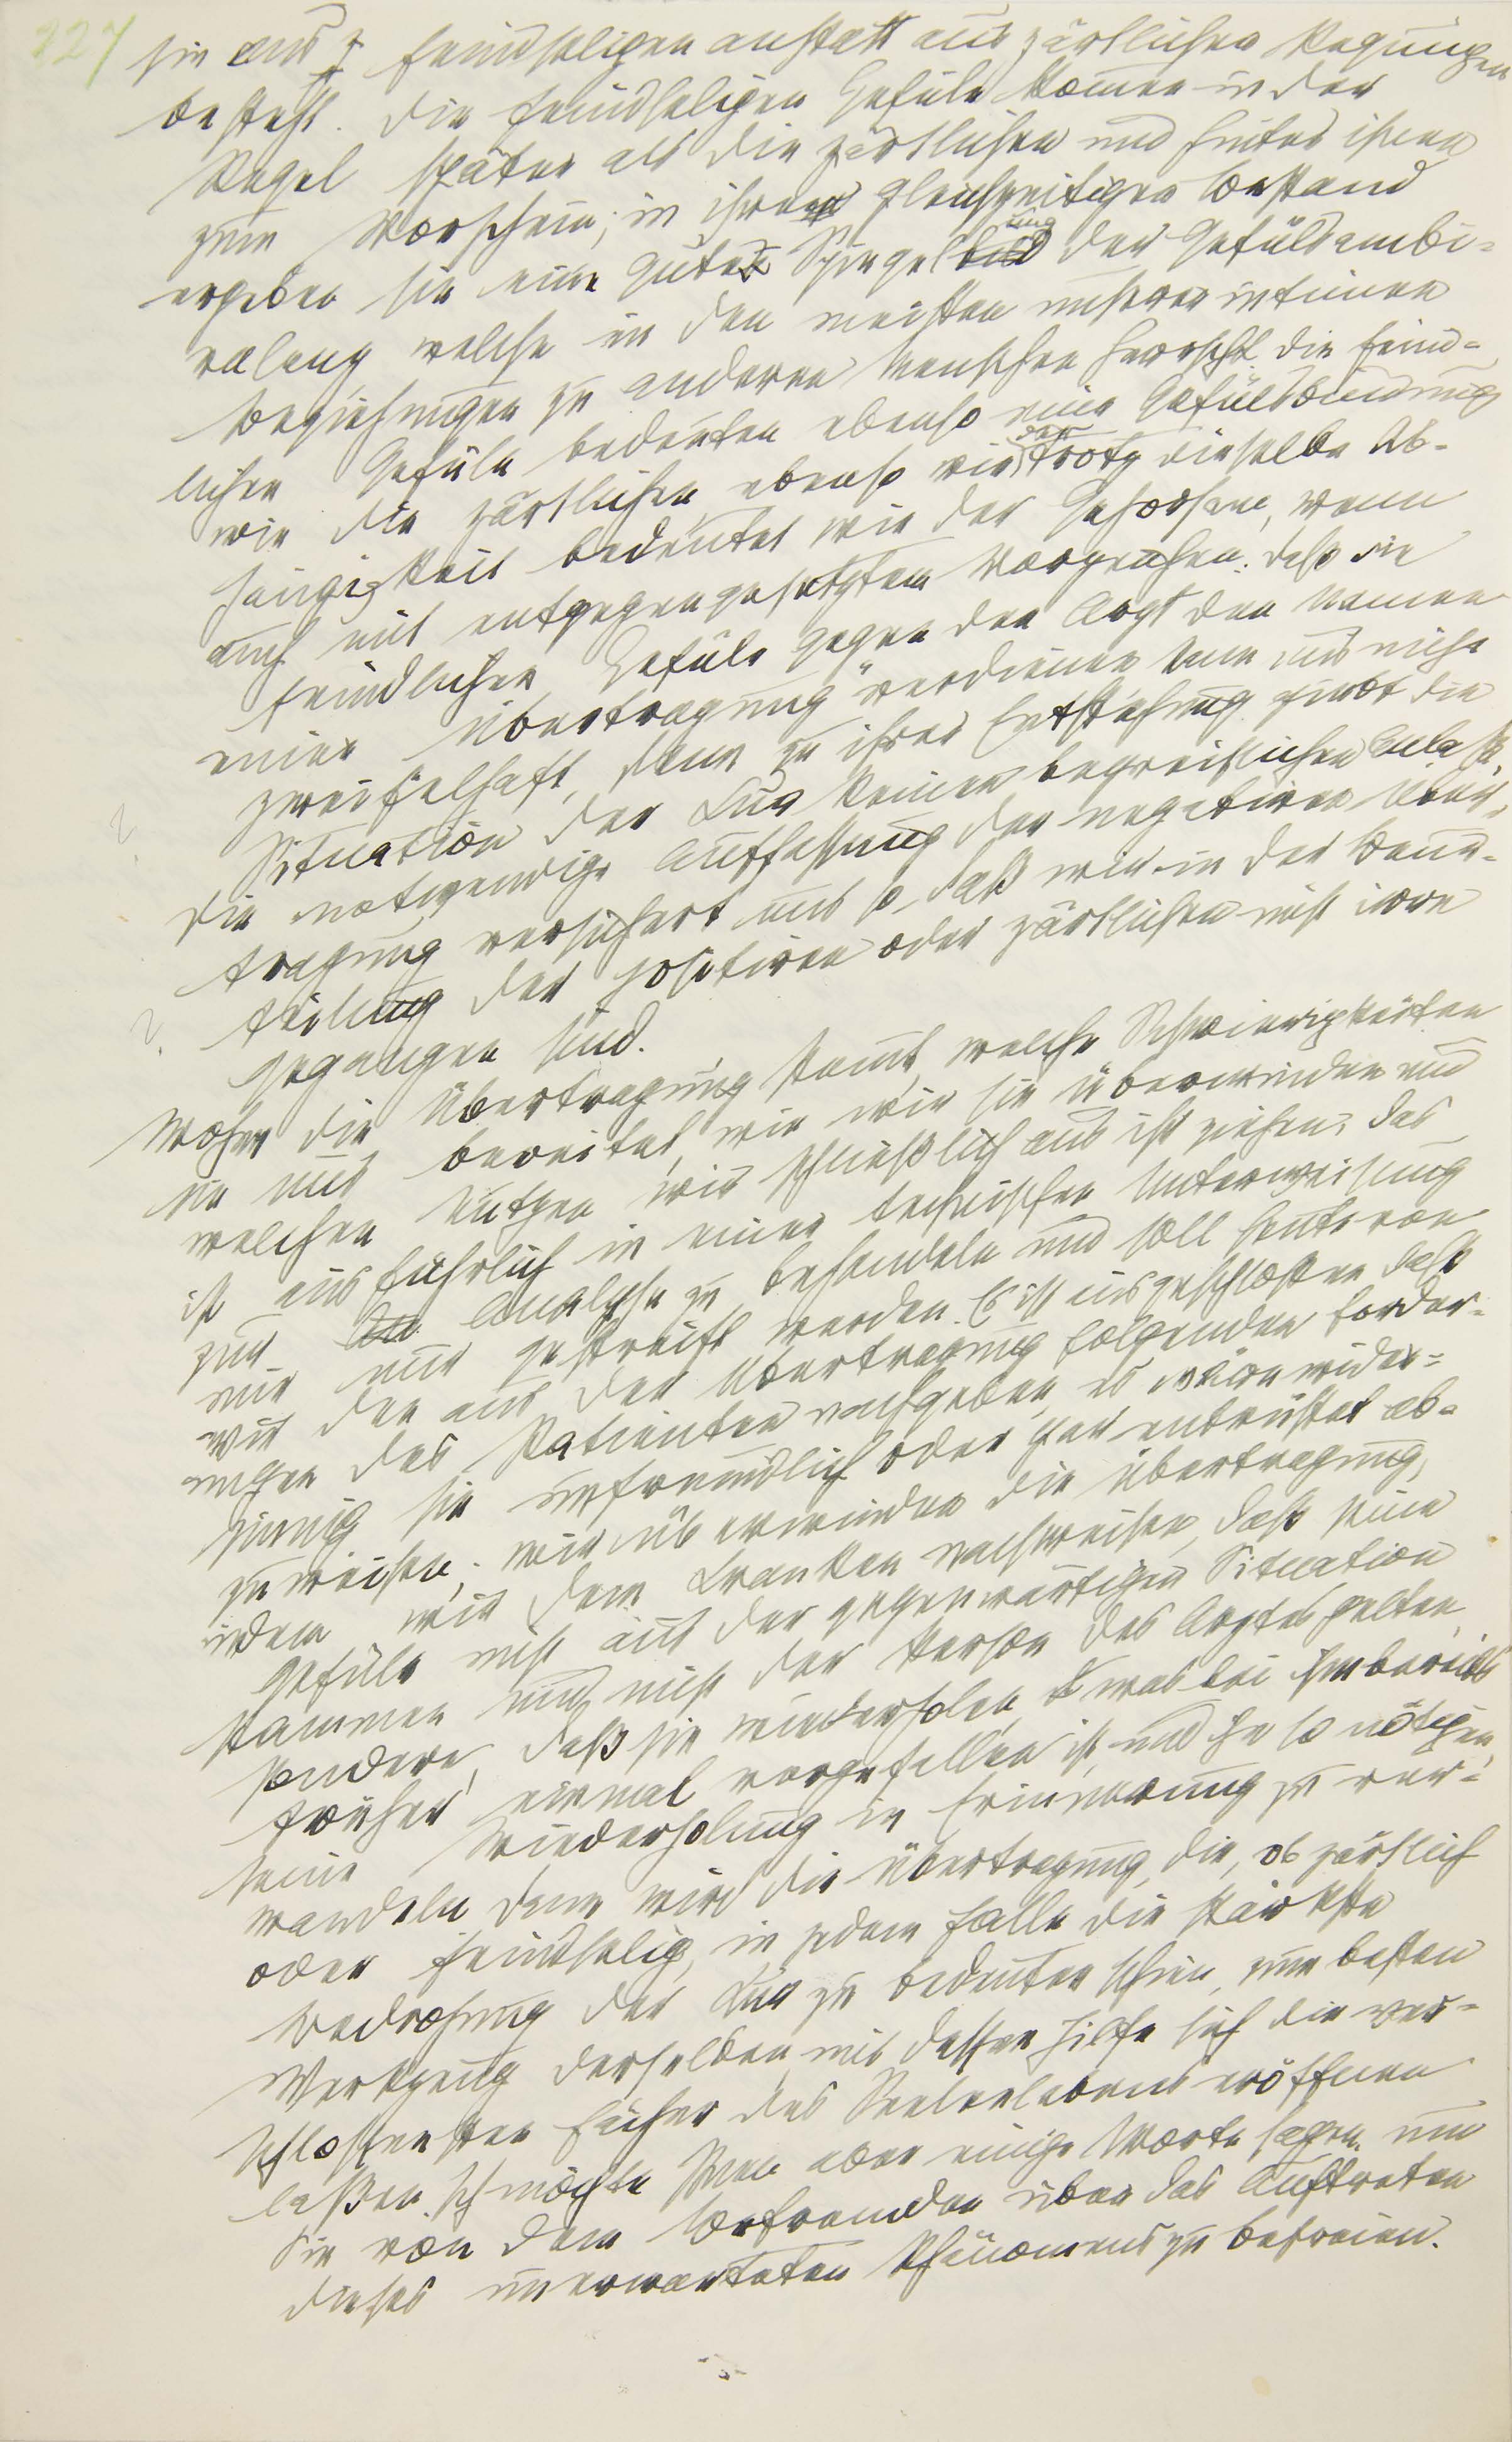 227
sie aus feindseligen anstatt aus zärtlichen Regungen
besteht. Die feindseligen Gefüle komen in der
Regel später als die zärtlichen und hinter ihnen
zum Vorschein; in ihrem gleichzeitigen Bestand
ergeben sie eine gute Spiegelbild ung der Gefülsambi-
valenz welche in den meisten unserer intimen
Beziehungen zu anderen Menschen herrscht die feind-
lichen Gefüle bedeuten ebenso eine Gefülsbindung
wie die zärtlichen, ebenso wie der Trotz dieselbe Ab-
hängigkeit bedeutet wie der Gehorsam, wenn
auch mit entgegengesetztem Vorzeichen. daß die
feindlichen Gefüle gegen den Arzt den Namen
einer „Übertragung“ verdienen kann uns nicht
zweifelhaft, denn zu ihrer Entstehung giebt die
Situation der Kur keinen begreiflichen Anlaß,
die notwendige Auffassung der negativen Über-
tragung versichert uns so, daß wir in der Beur-
teilung der positiven oder zärtlichen nicht irre
gegangen sind.
Woher die Übertragung stamt, welche Schwierigkeiten
sie uns bereitet, wie wir sie überwinden und
welchen Nutzen wir schließlich aus ihr ziehen, das
ist ausführlich in einer technischen Unterweisung
zur Analyse zu behandeln und soll heute von
mir nur gestreift werden. Es ist ausgeschlossen daß
wir den aus der Übertragung folgenden Forder-
ungen des Patienten nachgeben es wäre wider-
sinnig sie unfreundlich oder gar entrüstet ab-
zuweisen; wir überwinden die Übertragung,
indem wir dem Kranken nachweisen, daß seine
Gefüle nicht aus der gegenwärtigen Situation
stammen und nicht der Person des Arztes gelten,
sondern, daß sie wiederholen was bei ihm bereits
früher einmal vorgefallen ist, und ihn so nötigen,
seine Wiederholung in Erinnerung zu ver-
wandeln dann wird die Übertragung, die, ob zärtlich
oder feindselig, in jedem Falle die stärkste
Bedrohung der Kur zu bedeuten schien, zum besten
Werkzeug derselben mit dessen Hilfe sich die ver-
schlossensten Fächer des Seelenlebens eröffnen
laßen. Ich möchte Ihnen aber einige Worte sagen um
Sie von dem Befremden über das Auftreten
dieses unerwarteten Phänomens zu befreien.